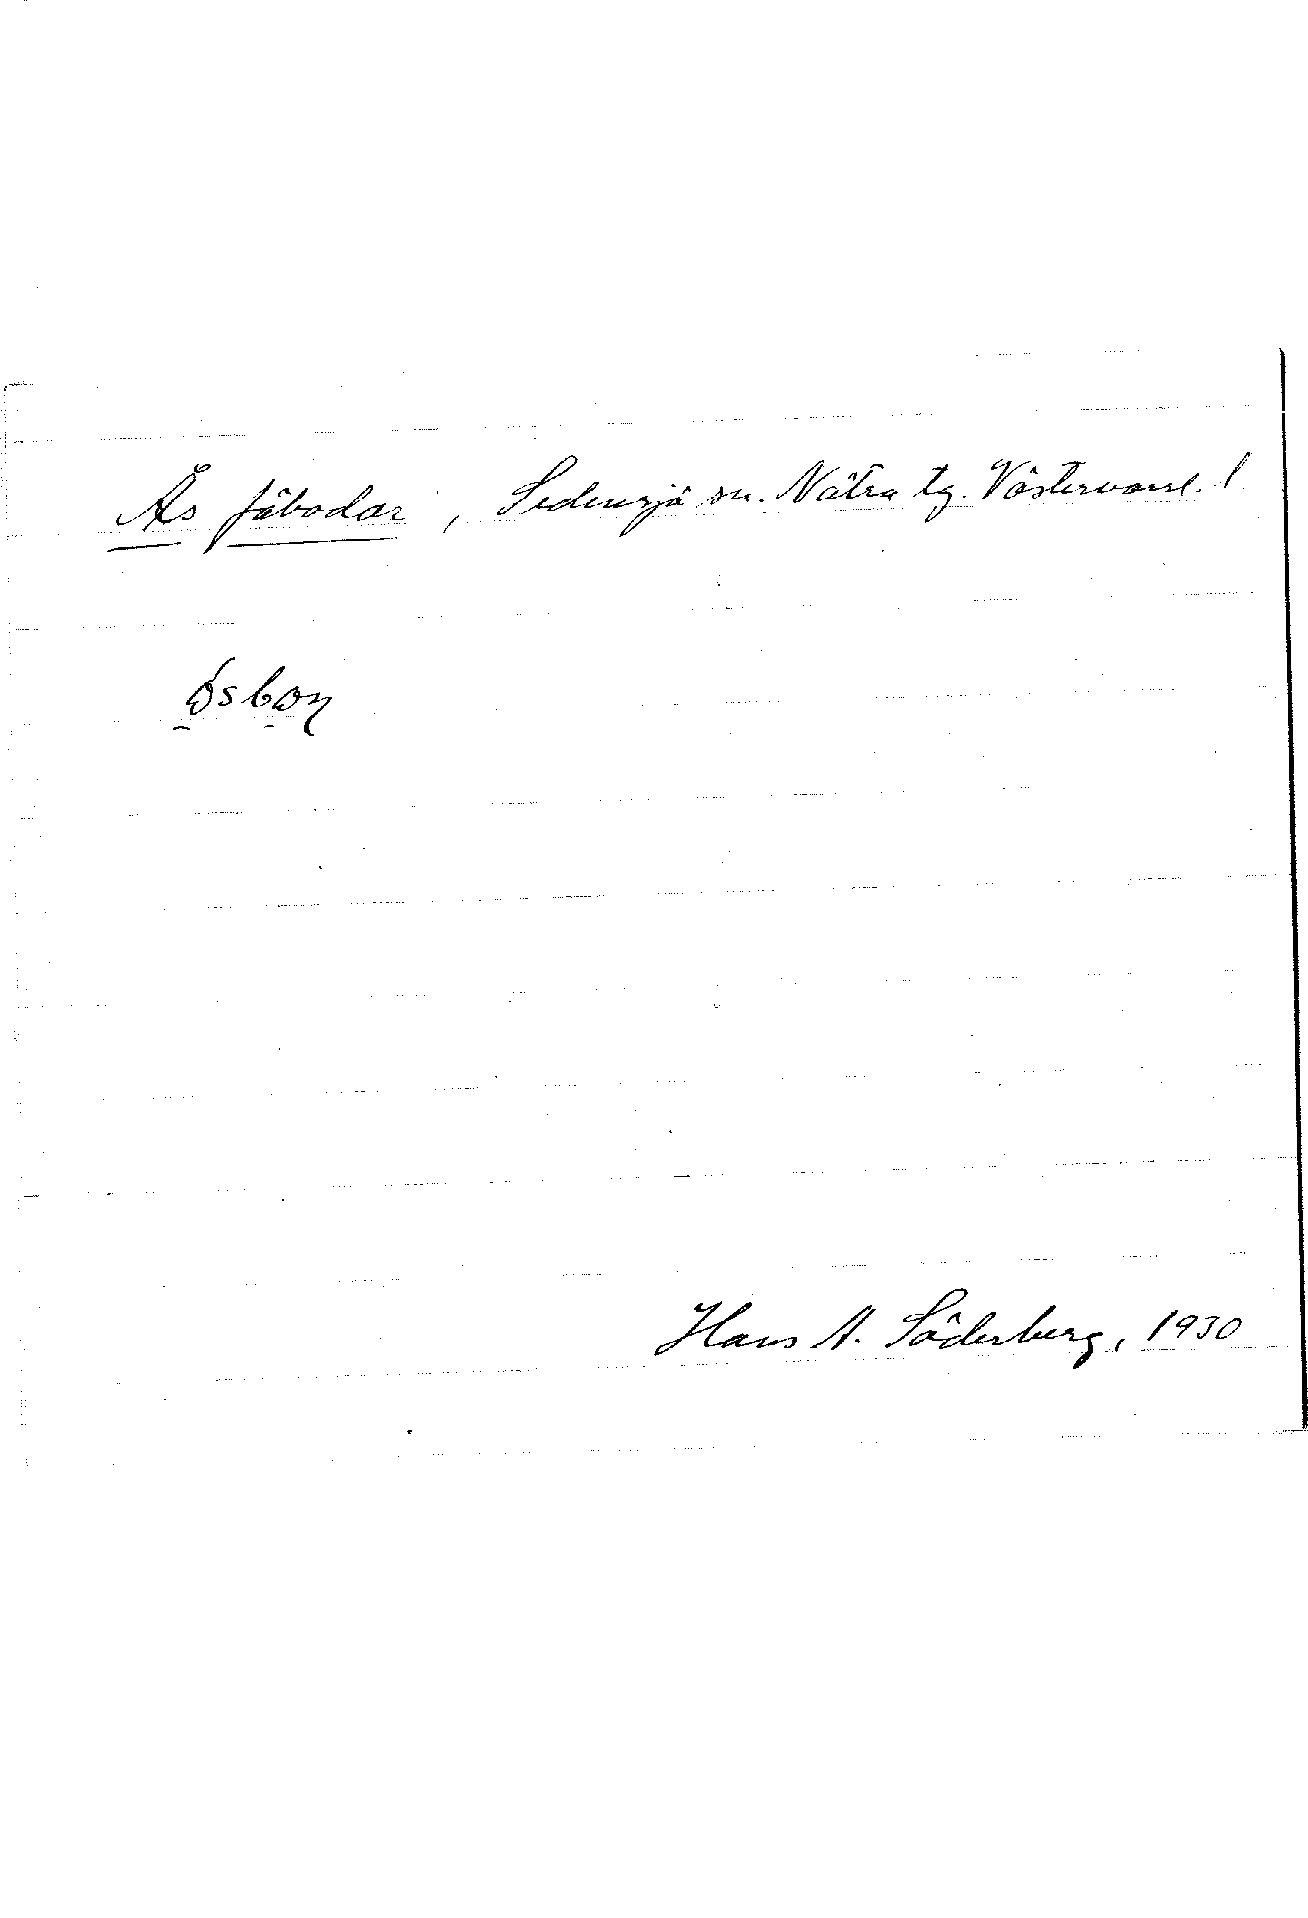 Ås fäbodar, Sidensjö sn. Nätra tg. Västernorrl. l
Hans A. Söderberg, 1930